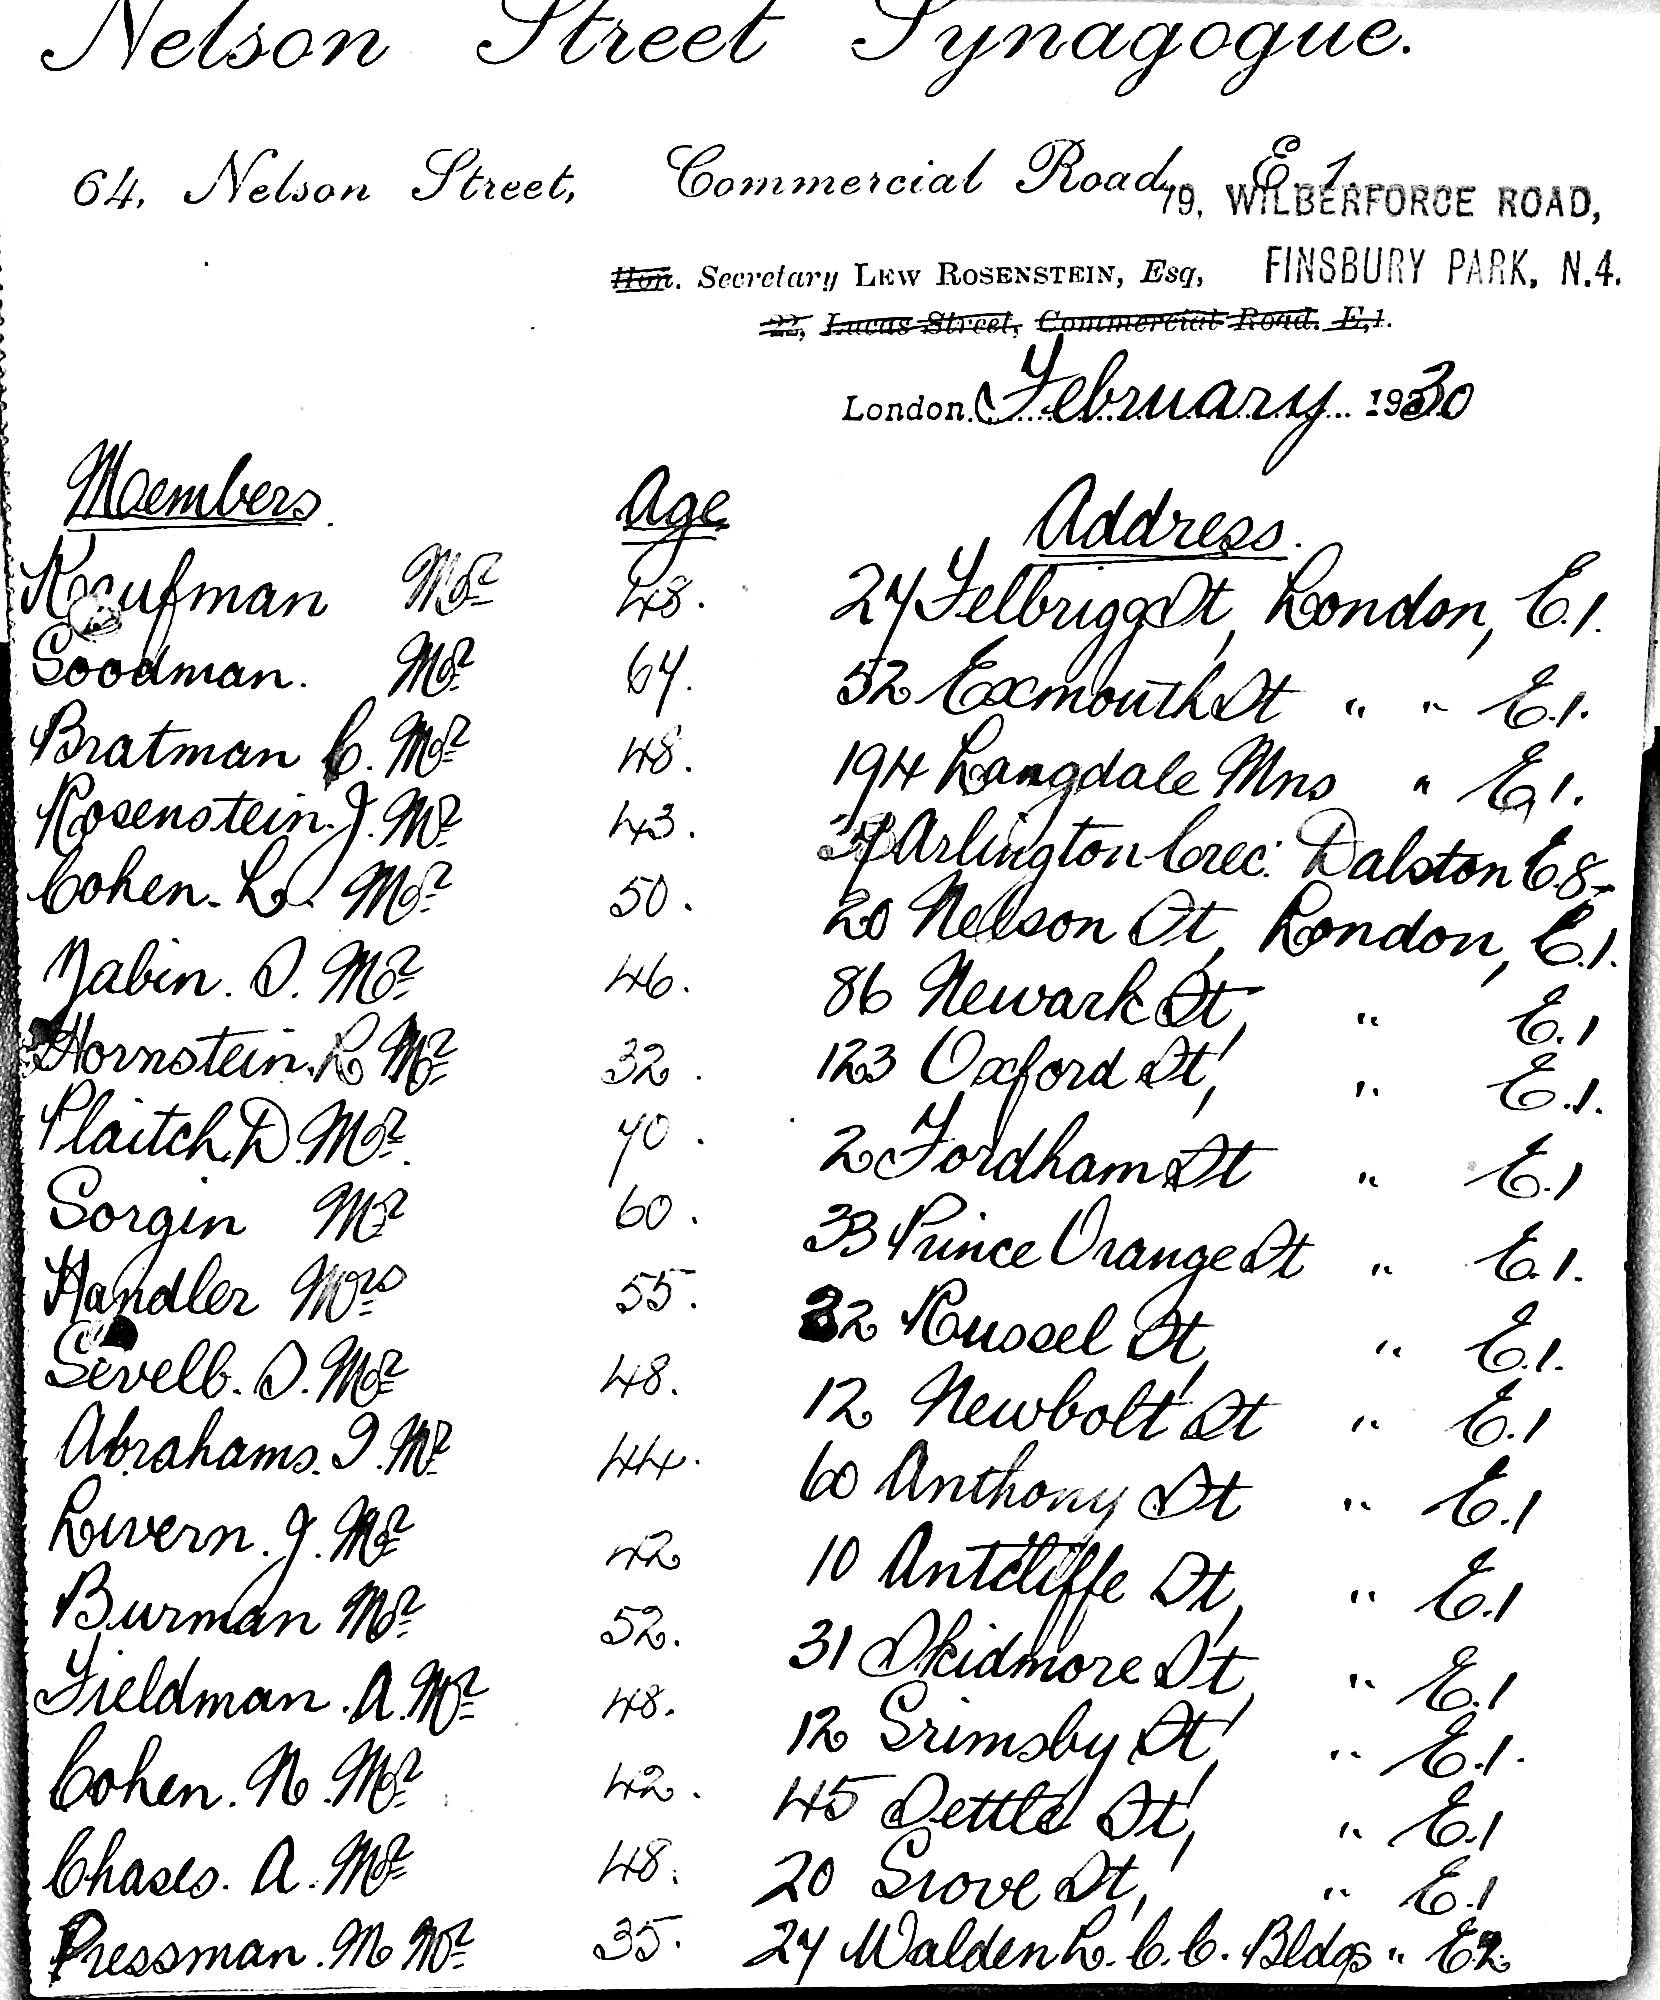 Nelson Street Synagogue.
64, Nelson Street, Commercial Road, E.1
79, WILBERFORCE ROAD,
Hon. Secretary LEW ROSENSTEIN, Esq, FINSBURY PARK, N.4.
22, Lucas Street, Commercial Road. E,1.
London. February 1930
Members. Age Address.
Kaufman Mr 48. 27 Felbrigg St, London, E.1.
Goodman. Mr 67. 52 Exmouth St " " E.1.
Bratman C. Mr 48. 194 Langdale Mns " E.1.
Rosenstein. J. Mr 43. Arlington Cres: Dalston E.8.
Cohen. L. Mr 50. 20 Nelson St, London, E.1.
Zabin. S. Mr 46. 86 Newark St, " E.1
Hornstein. R Mr 32. 123 Oxford St, " E.1.
Plaitch D. Mr. 70. 2 Fordham St " E.1
Sorgin Mr 60. 33 Prince Orange St " E.1.
Handler Mrs 55. 32 Russel St, " E.1.
Sevelb. S. Mr 48. 12 Newbolt St " E.1
Abrahams. I. Mr 44. 60 Anthony St " E.1
Livern. J. Mr 42 10 Antcliffe St, " E.1
Burman Mr 52. 31 Skidmore St, " E.1
Fieldman. A. Mr 48. 12 Grimsby St, " E.1.
Cohen. N. Mr 42. 45 Settle St, " E.1
Chases. A. Mr 48. 20 Grove St, " E.1
Pressman. M Mr 35. 27 Walden L.C.C. Bldgs " E.2.